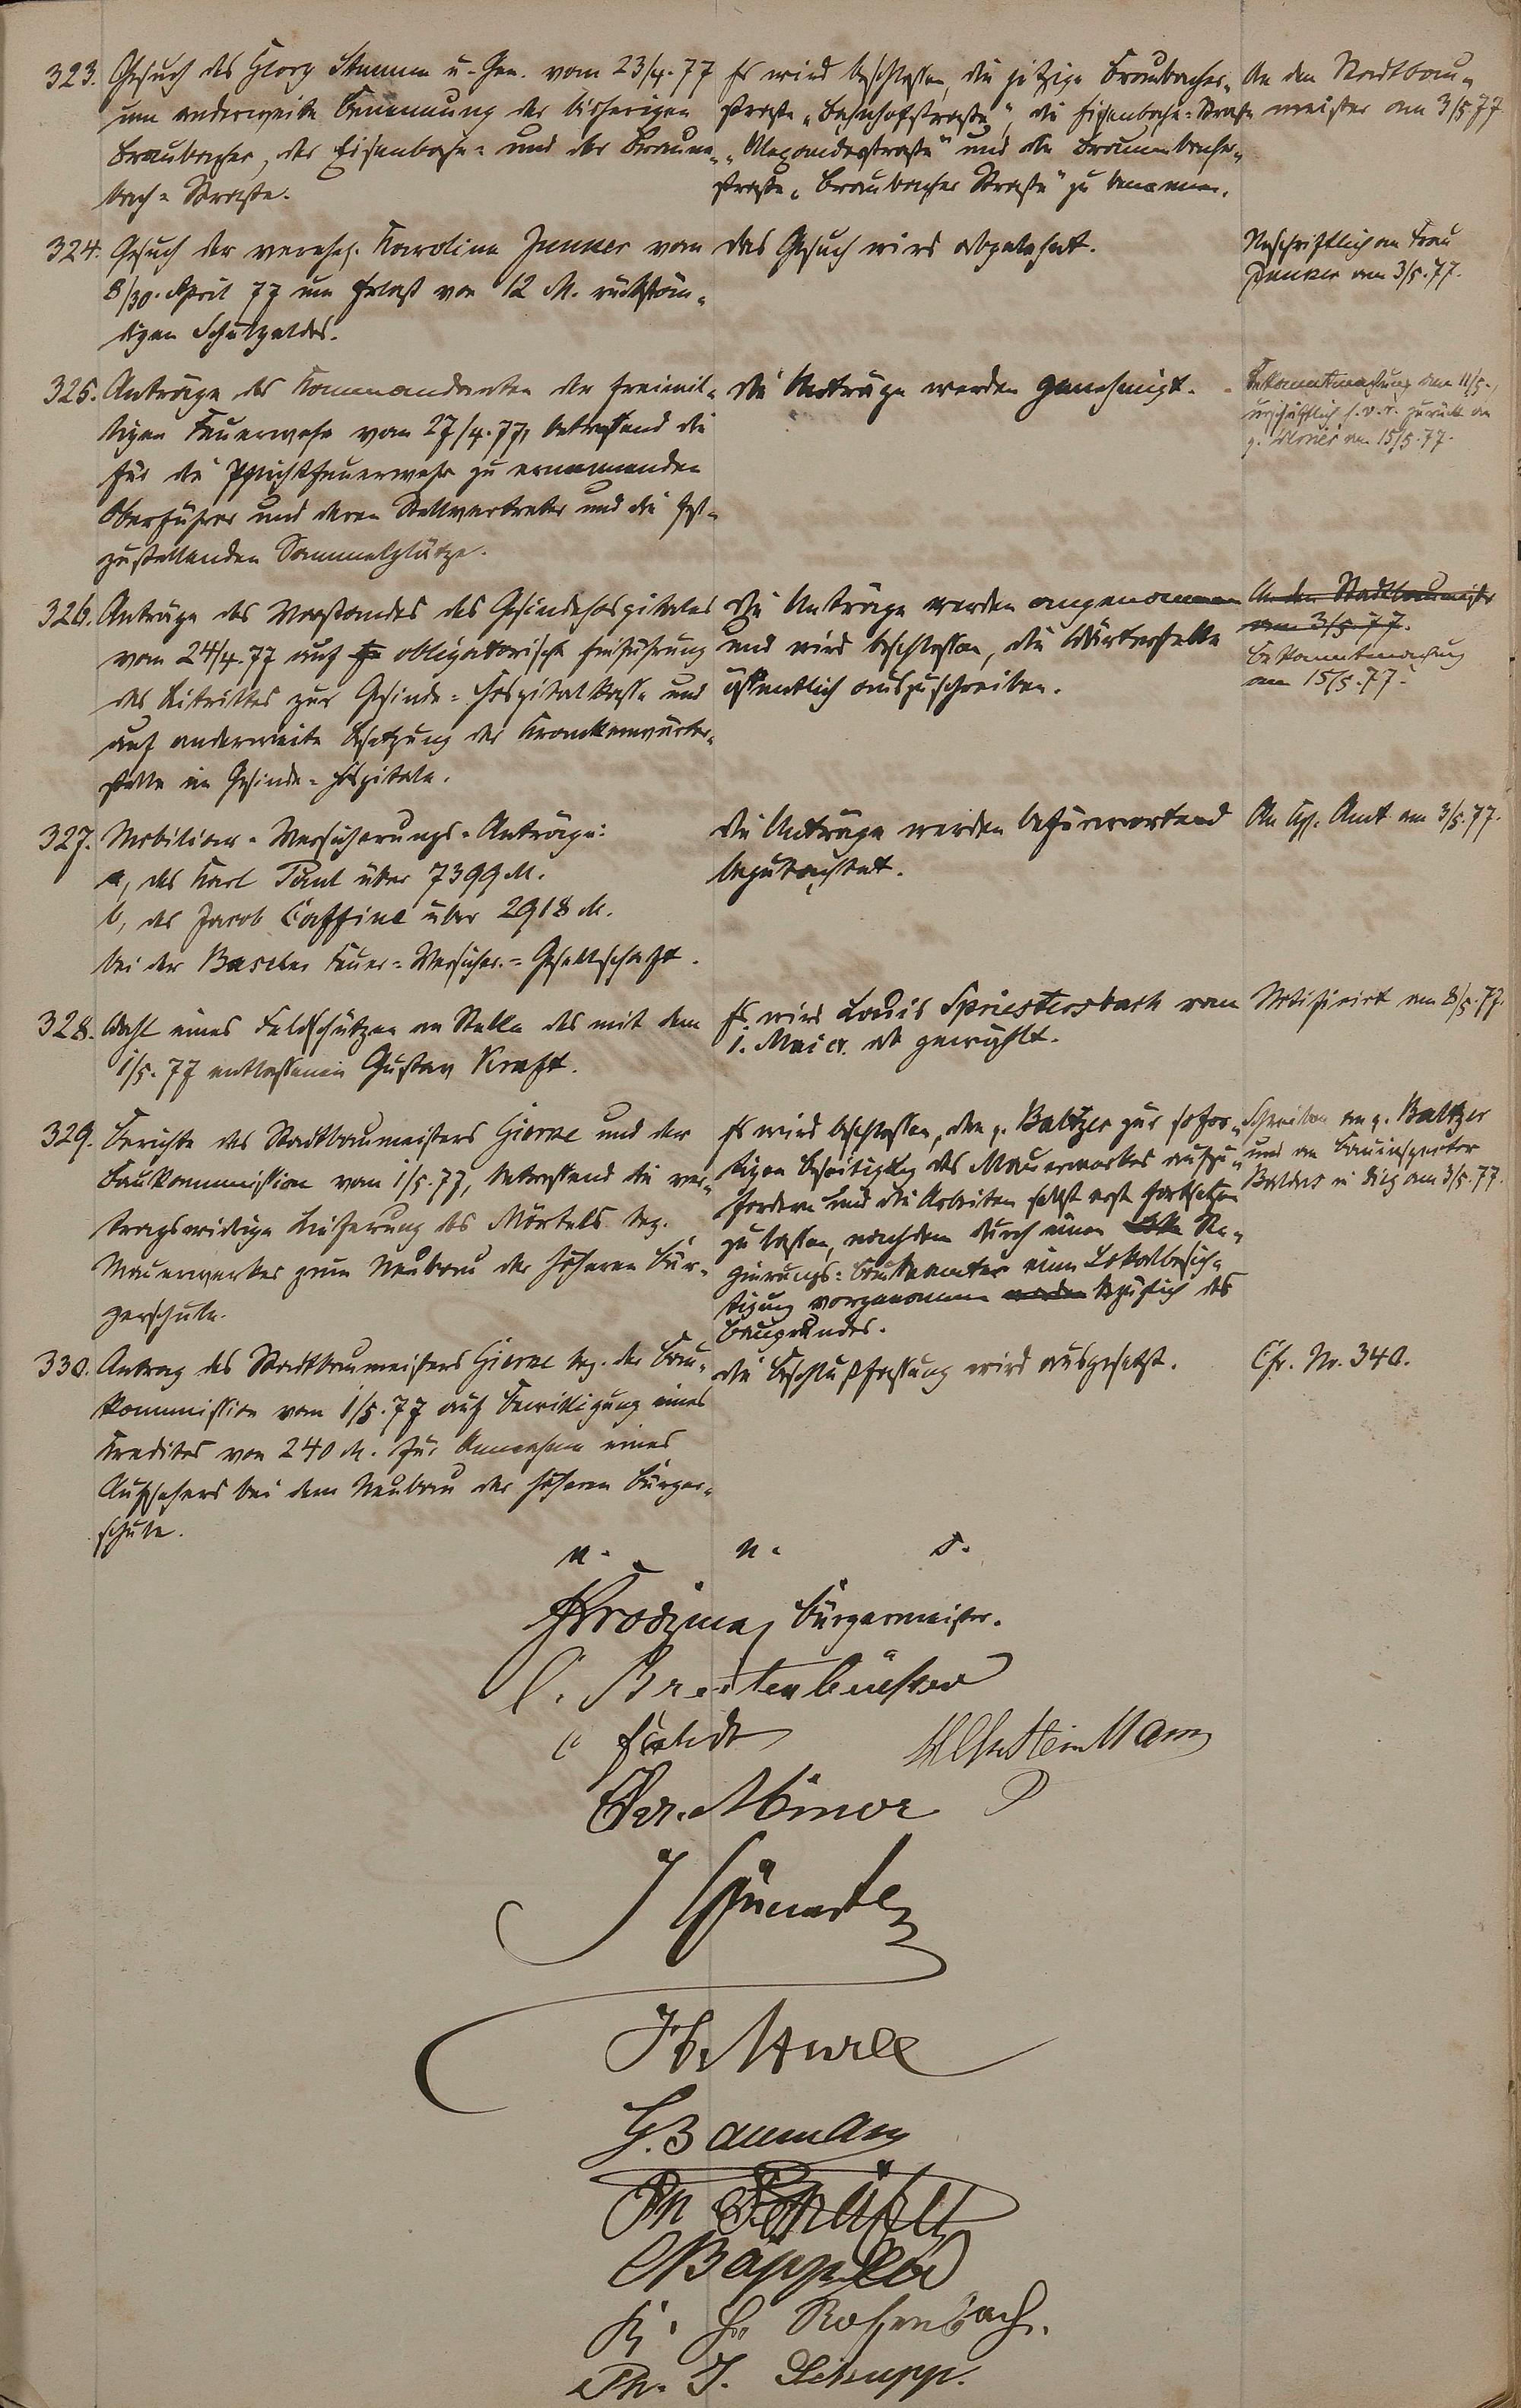 323. Gesuch des Georg Stamm u. Gen. vom 23/4.77
um anderweite Benennung der bisherigen
Braubacher, der Eisenbahn- und der Braunen-
bach-Straße.
Es wird beschlossen, die jetzige Braubacher-
straße „Bahnhofstraße“, die Eisenbahn-Straße
„Alexanderstraße“ und die Braunenbacher-
straße „Braubacher Straße“ zu benennen.
An den Stadtbau-
meister am 3/5 77
324. Gesuch der verehel. Karoline Junker vom
8/30. April 77 um Erlaß von 12 M. rückstän-
digen Schulgeldes.
Das Gesuch wird abgelehnt.
Abschriftlich an Frau
Junker am 3/5.77.
325. Anträge des Kommandanten der freiwil-
ligen Feuerwehr vom 27/4.77, betreffend die
für die Pflichtfeuerwehr zu ernennenden
Oberführer und deren Stellvertreter und die fest-
zustellenden Sammelplätze.
Die Anträge werden genehmigt.
Bekanntmachung am 11/5.,
urschriftlich s. v. r. zurück an
H. am 15/5.77.
326. Anträge des Vorstandes des Gesindehospitales
vom 24/4.77 auf obligatorische Einführung
des Beitrittes zur Gesinde-Hospitalkasse und
auf anderweite Besetzung der Krankenwärter-
stelle im Gesinde-Hospitale.
Die Anträge werden angenommen
und wird beschlossen, die Wärterstelle
öffentlich auszuschreiben.
An den Stadtbaumeister
am 3/5 77.
Bekanntmachung
am 15/5.77.
327. Mobiliar-Versicherungs-Anträge:
a, des Karl Paul über 7399 M.
b, des Jacob Caffine über 2918 M.
bei der Baseler Feuer-Versicher.-Gesellschaft.
Die Anträge werden befürwortend
begutachtet.
An Kgl. Amt am 3/5.77.
328. Wahl eines Feldschützen an Stelle des mit dem
1/5.77 entlassenen Gustav Kraft.
Es wird Louis Spriestersbach vom
1. Mai cr. ab gewählt.
Notifizirt am 8/5.77.
329. Berichte des Stadtbaumeisters Gierse und der
Baukommission vom 1/5.77, betreffend die ver-
tragswidrige Lieferung des Mörtels bez.
Mauerwerkes zum Neubau der höheren Bür-
gerschule.
Es wird beschlossen, den H. Baltzer zur sofor-
tigen Beseitigung des Mauerwerkes aufzu-
fordern und die Arbeiten selbst erst fortsetzen
zu lassen, nachdem durch einen Re-
gierungs-Baubeamten eine Lokalbesich-
tigung vorgenommen worden bezüglich des
Baugrundes.
Schreiben an H. Baltzer
und an Bauinspector
Baldus in Diez am 3/5.77.
330. Antrag des Stadtbaumeisters Gierse bez. der Bau-
kommission vom 1/5.77 auf Bewilligung eines
Kredites von 240 M. für Annahme eines
Aufsehers bei dem Neubau der höheren Bürger-
schule.
Die Beschlußfassung wird ausgesetzt.
Cfr. Nr. 340.
Bürgermeister.
C. Breitenbücher
Chr. Minor
G. Baumann
Bäppler
H. Rosenbach.
Ph. J. Schupp.